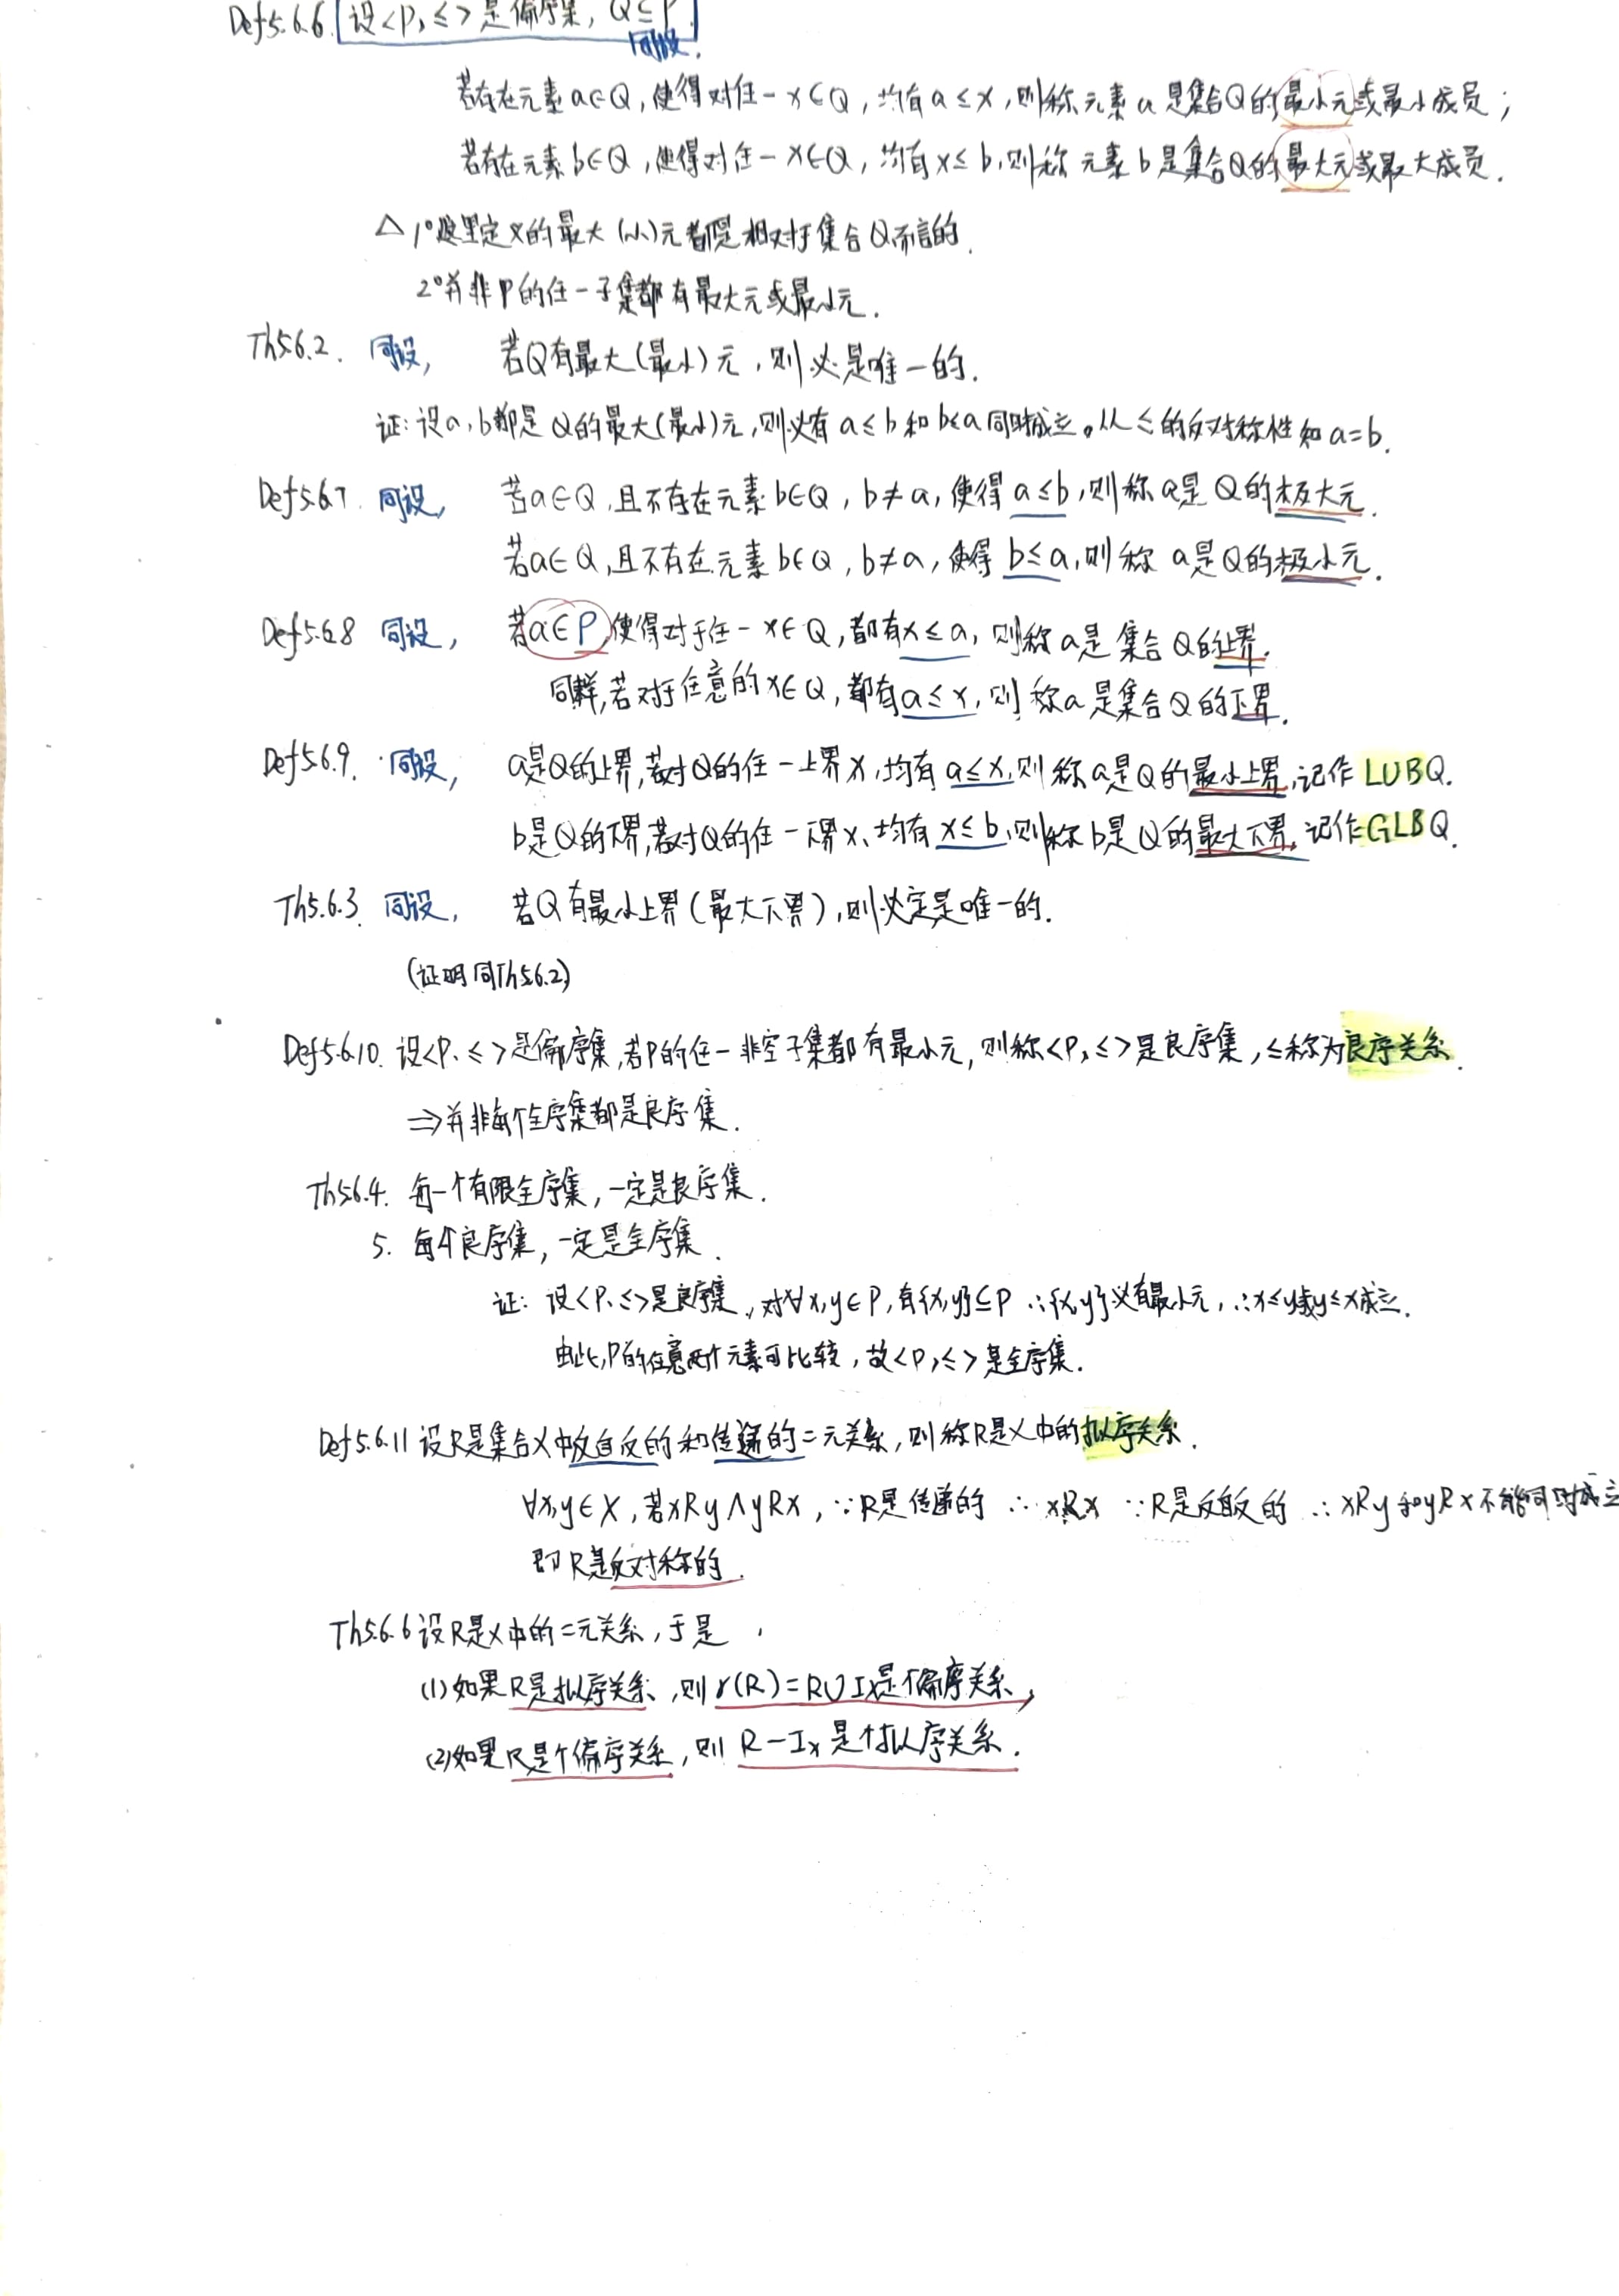 Def5.6.6. 设<P,≤>是偏序集, Q⊆P.
同设.
若存在元素a∈Q,使得对任一x∈Q,均有a≤x,则称元素a是集合Q的最小元或最小成员;
若存在元素b∈Q,使得对任一x∈Q,均有x≤b,则称元素b是集合Q的最大元或最大成员.
△ 1°这里定义的最大(小)元都是相对于集合Q而言的.
2°并非P的任一子集都有最大元或最小元.
Th5.6.2. 同设, 若Q有最大(最小)元,则必是唯一的.
证:设a,b都是Q的最大(最小)元,则必有a≤b和b≤a同时成立。从≤的反对称性知a=b.
Def5.6.7. 同设, 若a∈Q,且不存在元素b∈Q,b≠a,使得a≤b,则称a是Q的极大元.
若a∈Q,且不存在元素b∈Q,b≠a,使得b≤a,则称a是Q的极小元.
Def5.6.8 同设, 若a∈P,使得对于任一x∈Q,都有x≤a,则称a是集合Q的上界.
同样,若对于任意的x∈Q,都有a≤x,则称a是集合Q的下界.
Def5.6.9. 同设, a是Q的上界,若对Q的任一上界x,均有a≤x,则称a是Q的最小上界,记作LUBQ.
b是Q的下界,若对Q的任一下界x,均有x≤b,则称b是Q的最大下界,记作GLBQ.
Th5.6.3. 同设, 若Q有最小上界(最大下界),则必定是唯一的.
(证明同Th5.6.2)
Def5.6.10. 设<P,≤>是偏序集,若P的任一非空子集都有最小元,则称<P,≤>是良序集,≤称为良序关系.
⇒并非每个全序集都是良序集.
Th5.6.4. 每一个有限全序集,一定是良序集.
5. 每个良序集,一定是全序集.
证: 设<P,≤>是良序集,对∀x,y∈P,有{x,y}⊆P ∴{x,y}必有最小元,∴x≤y或y≤x成立.
由此,P的任意两个元素可比较,故<P,≤>是全序集.
Def5.6.11 设R是集合X中反自反的和传递的二元关系,则称R是X中的拟序关系.
∀x,y∈X,若xRy∧yRx,∵R是传递的 ∴xRx ∵R是反自反的 ∴xRy和yRx不能同时成立
即R是反对称的.
Th5.6.6 设R是X中的二元关系,于是,
(1)如果R是拟序关系,则r(R)=R∪Ix是个偏序关系,
(2)如果R是个偏序关系,则R-Ix是个拟序关系.